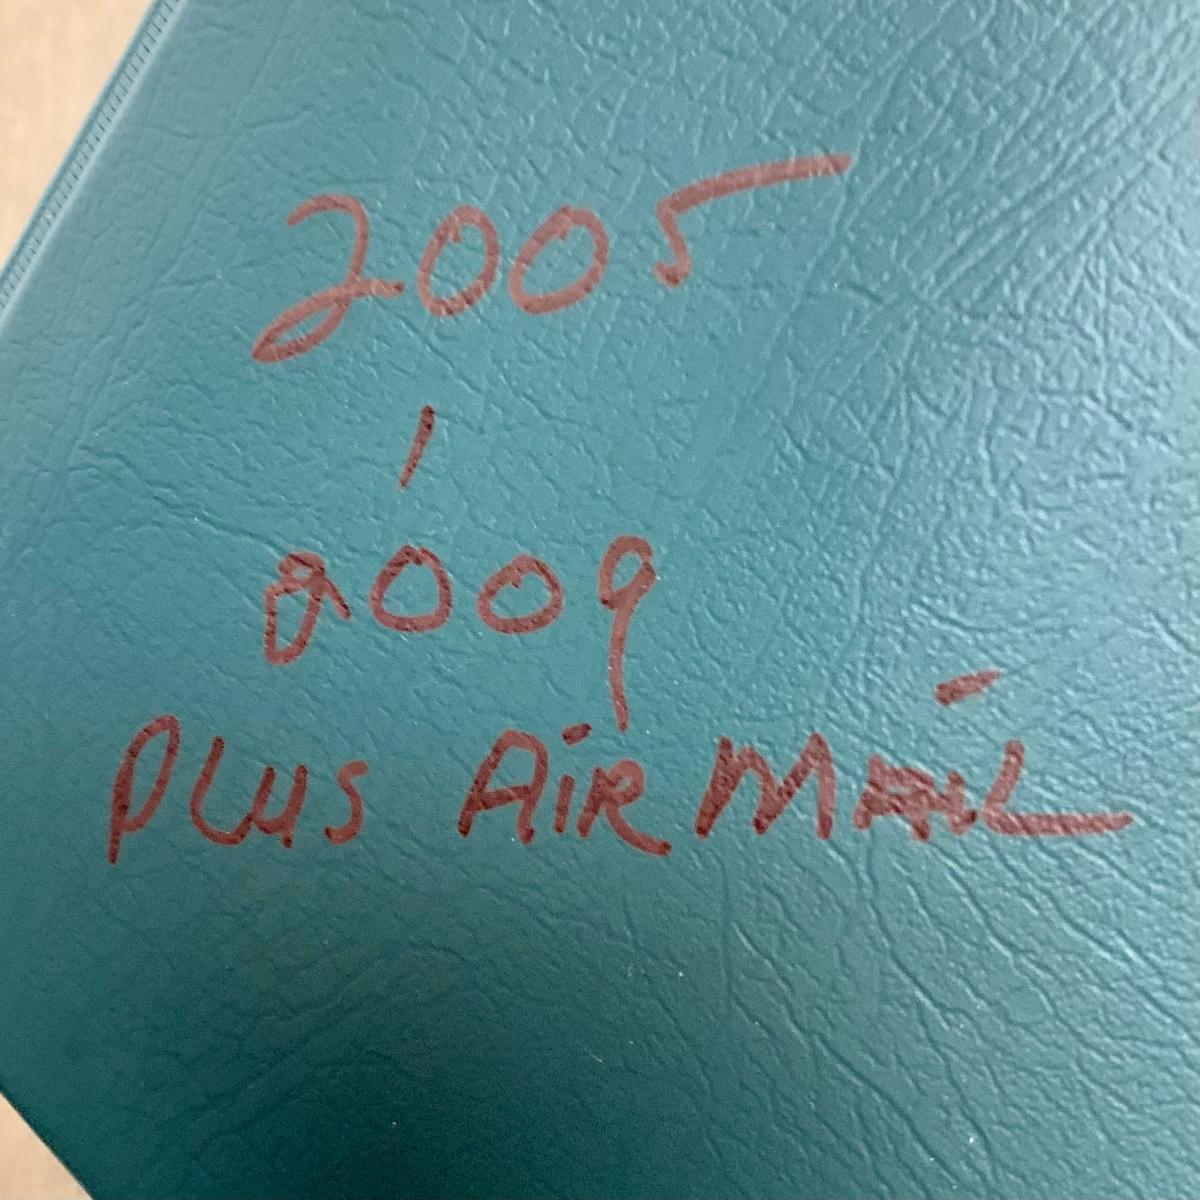 2005
-
2009
PLUS AiR MAiL